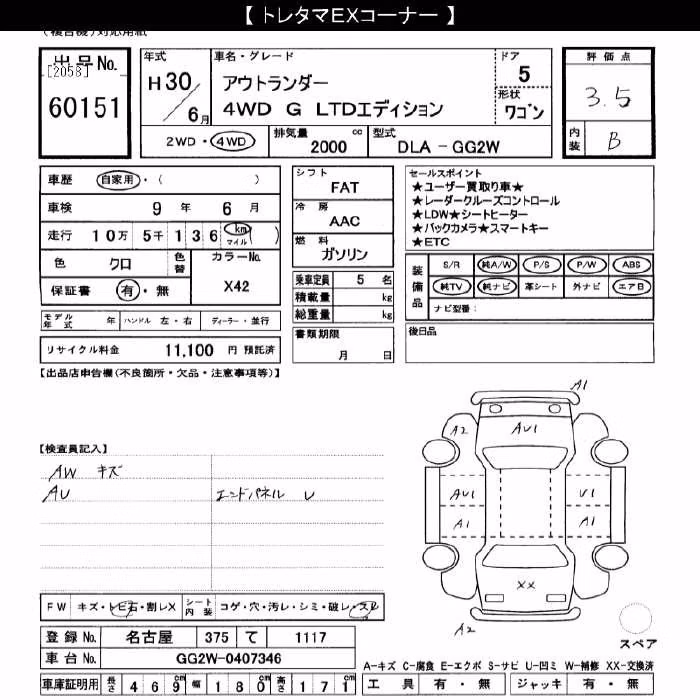 【 トレタマEXコーナー 】
(複合機)対応用紙
出品No.
[2058]
60151
年式
H30/6月
車名・グレード
アウトランダー
4WD G LTDエディション
ドア
5
形状
ワゴン
評価点
3.5
内装
B
2WD・4WD
排気量
2000 cc
型式
DLA - GG2W
車歴 自家用・( )
車検 9年 6月
走行 10万 5千 136 (km マイル)
色 クロ
色替
カラーNo.
X42
保証書 有・無
モデル年式 年
ハンドル 左・右
ディーラー・並行
リサイクル料金 11,100 円 預託済
シフト
FAT
冷房
AAC
燃料
ガソリン
乗車定員 5 名
積載量 kg
総重量 kg
書類期限
月 日
セールスポイント
★ユーザー買取り車★
★レーダークルーズコントロール
★LDW★シートヒーター
★バックカメラ★スマートキー
★ETC
装備品
S/R 純A/W P/S P/W ABS
純TV 純ナビ 革シート 外ナビ エアB
ナビ型番:
後日品
【出品店申告欄(不良箇所・欠品・注意事項等)】
【検査員記入】
AW キズ
AU
エンドパネル U
A1
A2
AU1
AU1
U1
A1
A1
XX
A2
スペア
FW キズ・トビ石・割レX
シート内装 コゲ・穴・汚レ・シミ・破レ・スレ
登録No. 名古屋 375 て 1117
車台No. GG2W-0407346
車庫証明用 長さ 469cm 幅 180cm 高さ 171cm
A-キズ C-腐食 E-エクボ S-サビ U-凹ミ W-補修 XX-交換済
工具 有・無
ジャッキ 有・無